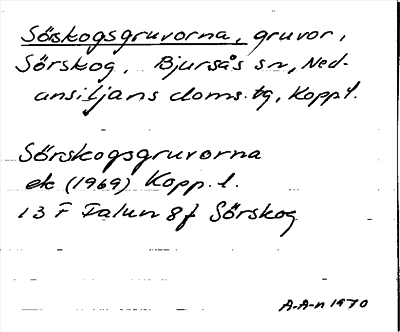 Sörskogsgruvorna, gruvor,
Sörskog, Bjursås sn, Ned-
ansiljans doms.tg, Kopp.l.
Sörskogsgruvorna
ek (1969) Kopp. l.
13 F Falun 8f Sörskog
A-A-n 1970